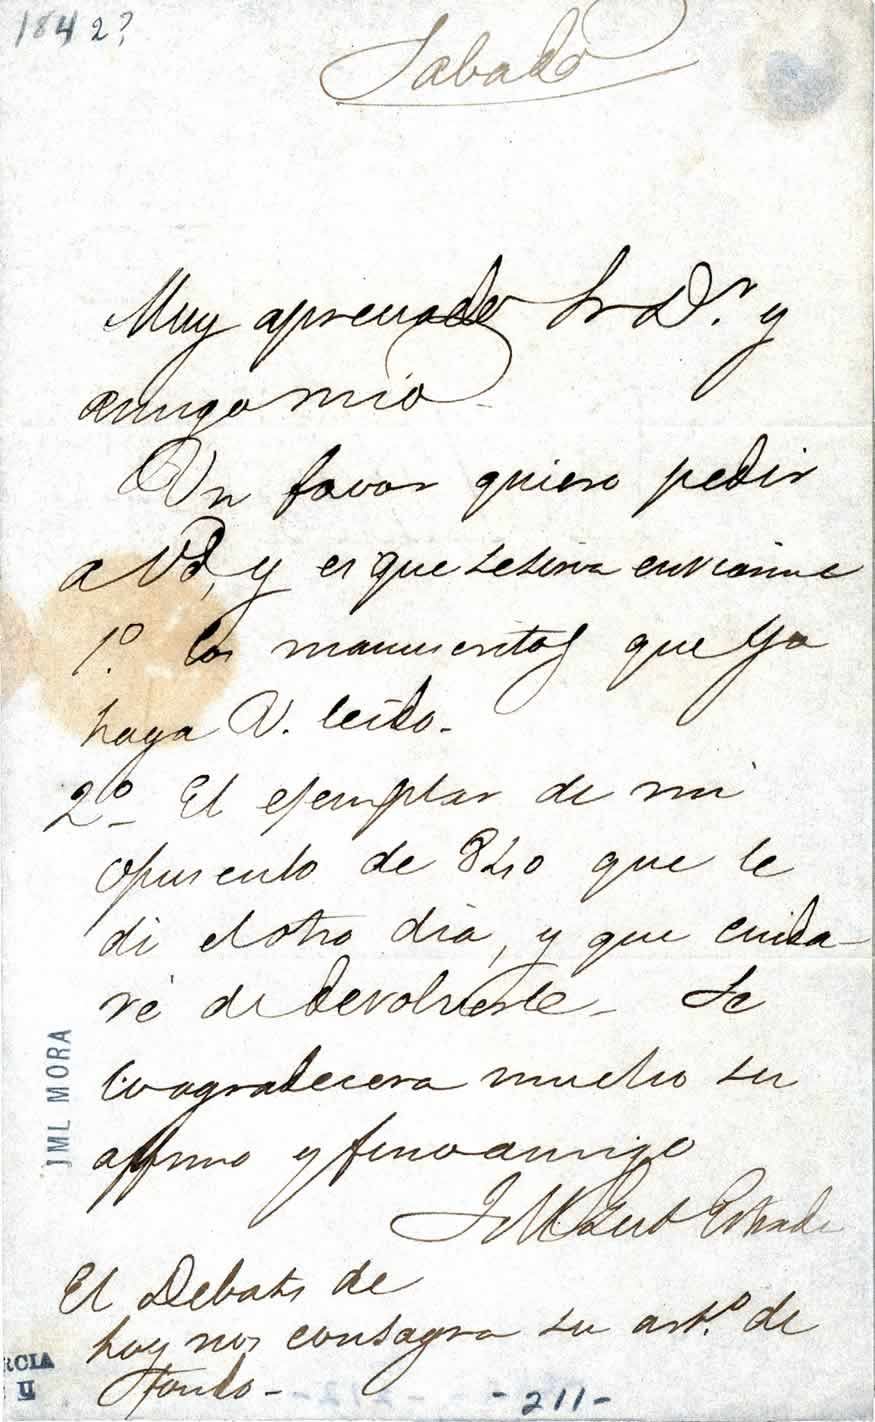 1842?
Sabado
Muy apreciado Sr Dr. y
amigo mio
Un favor quiero pedir
a Vd, y es que se sirva enviarme
1º. los manuscritos que ya
haya V. leido.
2º El ejemplar de mi
opusculo de 840 que le
di el otro dia, y que cuida-
ré de devolverle. Se
lo agradecera mucho su
affmo y fino amigo
J M Gut Estrada
El Debats de
hoy nos consagra su arto. de
fondo-
JML MORA
RCIA
II
-211-